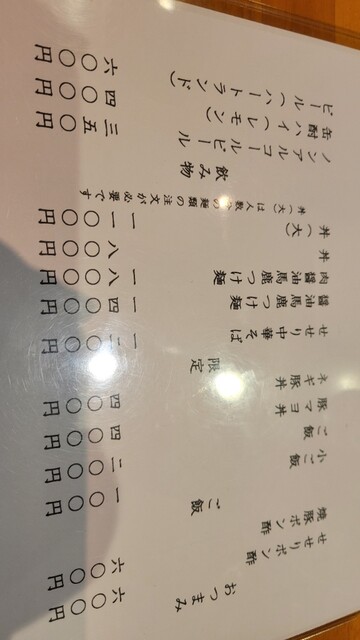 おつまみ
せせりポン酢 六〇〇円
焼豚ポン酢 六〇〇円
ご飯
小ご飯 一〇〇円
ご飯 二〇〇円
豚マヨ丼 四〇〇円
ネギ豚丼 四〇〇円
限定
せせり中華そば 一二〇〇円
醤油馬鹿つけ麺 一四〇〇円
肉醤油馬鹿つけ麺 一八〇〇円
丼 八〇〇円
丼(大) 一一〇〇円
丼(大)は人数分の麺類の注文が必要です
飲み物
ノンアルコールビール 三五〇円
缶酎ハイ(レモン) 四〇〇円
ビール(ハートランド) 六〇〇円